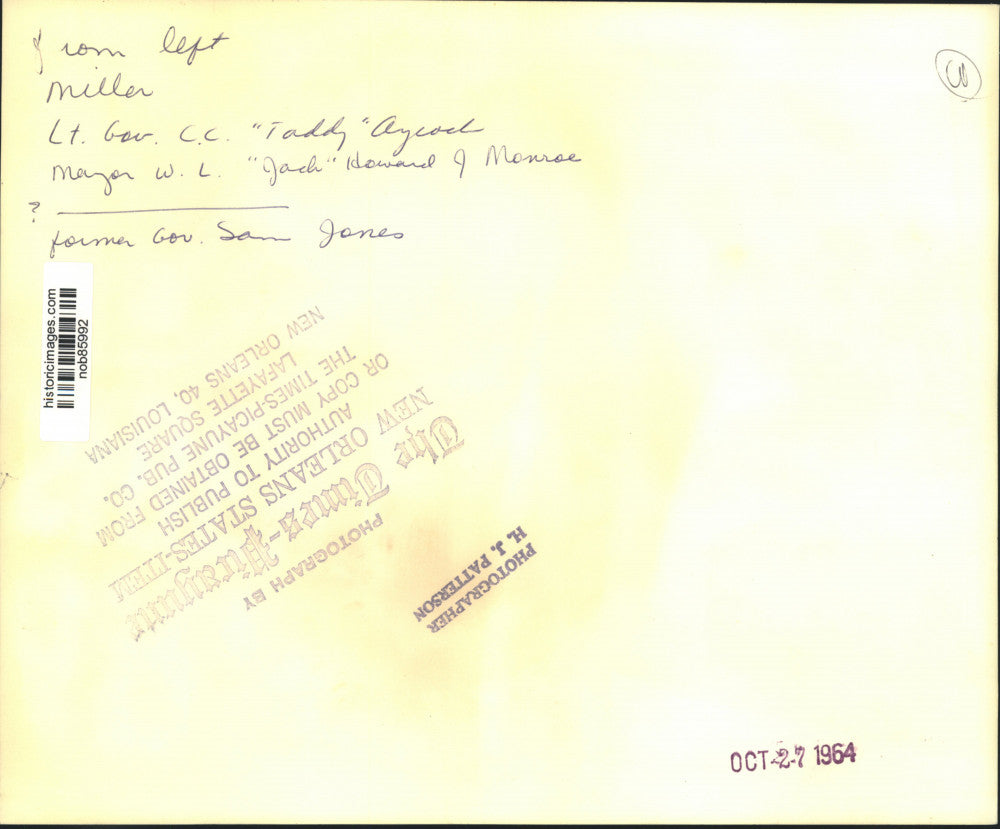 From left
Miller
Lt. Gov. C.C. "Taddy" Aycock
Mayor W. L. "Jack" Howard of Monroe
? ___
former Gov. Sam Jones
historicimages.com
nob85992
PHOTOGRAPH BY
The Times-Picayune
NEW ORLEANS STATES-ITEM
AUTHORITY TO PUBLISH
OR COPY MUST BE OBTAINED FROM
THE TIMES-PICAYUNE PUB. CO.
LAFAYETTE SQUARE
NEW ORLEANS 40, LOUISIANA
PHOTOGRAPHER
H. J. PATTERSON
OCT 27 1964